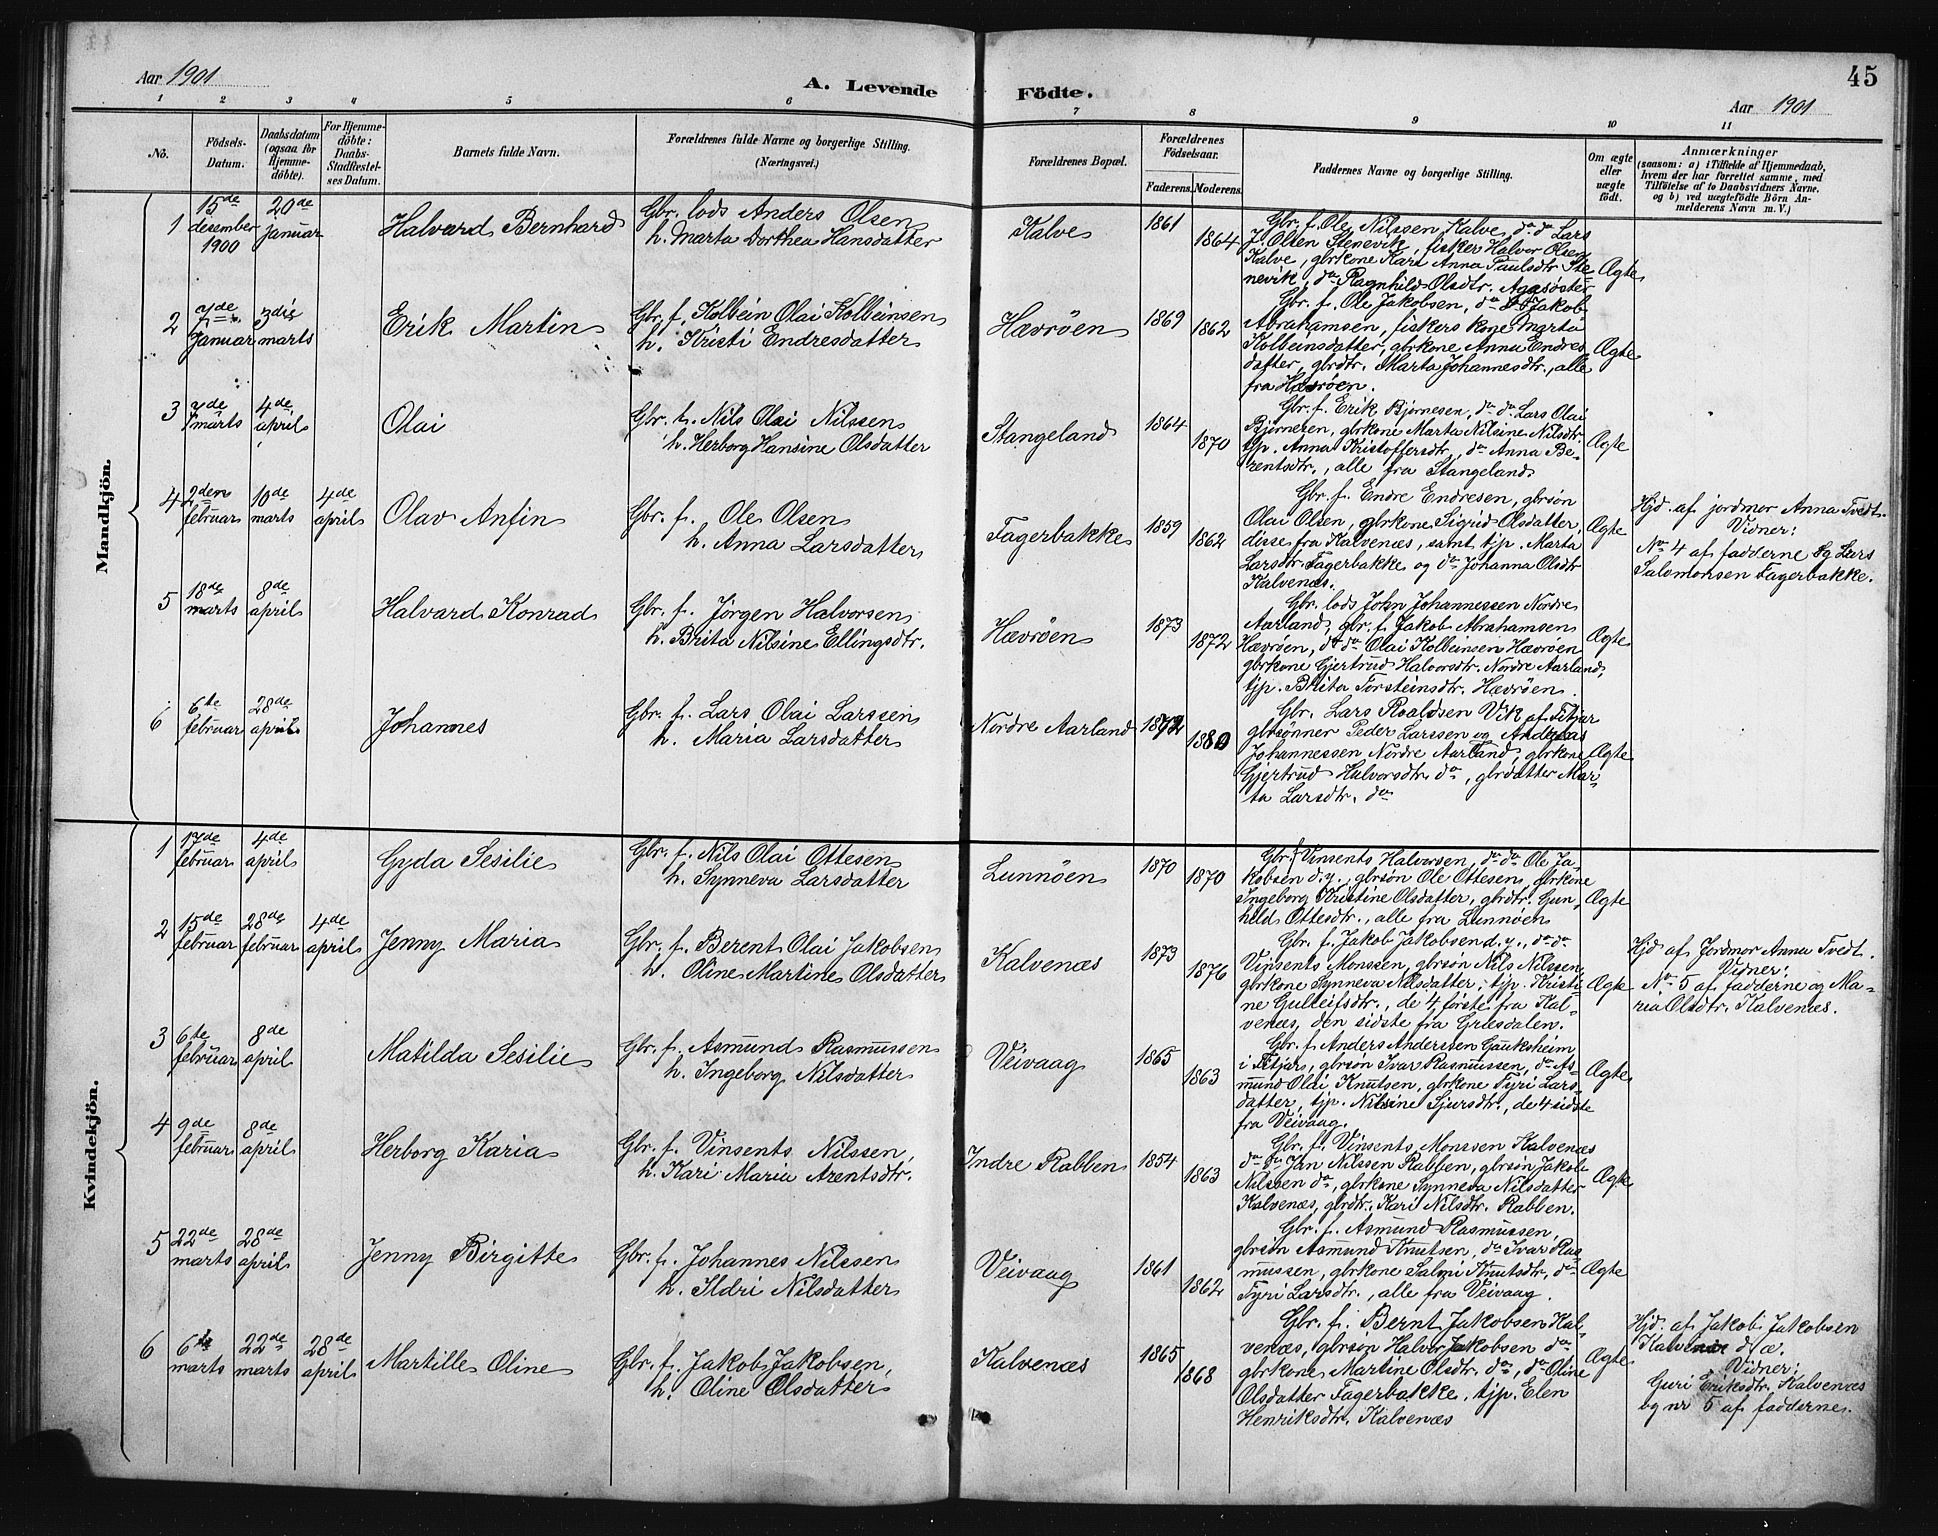 45
Aar 1901
A. Levende Födte.
Aar 1901
1 2 3 4 5 6 7 8 9 10 11
No.
Födsels-Datum.
Daabsdatum (ogsaa for Hjemme-döbte).
For Hjemme-döbte: Daabs-Stadfæstel-ses Datum.
Barnets fulde Navn.
Forældrenes fulde Navne og borgerlige Stilling. (Næringsvei.)
Forældrenes Bopæl.
Forældrenes Födselsaar.
Faderens. Moderens.
Faddernes Navne og borgerlige Stilling.
Om ægte eller uægte födt.
Anmærkninger
(saasom: a) i Tilfælde af Hjemmedaab, hvem der har forrettet samme, med Tilföielse af to Daabsvidners Navne. og b) ved uægtefödte Börn An-melderens Navn m. V.)
Mandkjön.
1 15de desember 1900 20de januar Halvard Bernhard
Gbr. lods Anders Olsen
h. Marta Dorthea Hansdatter
Kalve 1861 1864
Gbr. f. Ole Nilssen Kalve, do do Lars
J. Olsen Stenevik, fisker Halvor Olsen
Kalve, gbrkone Kari Anna Paulsdtr. Ste-
nevik, do Ragnhild Olsdtr. Aggsøster
Ægte
2 7de januar 3die marts Erik Martin
Gbr. f. Kolbein Olai Kolbeinsen
h. Kristi Endresdatter
Hævröen 1869 1862
Gbr. f. Ole Jakobsen, do Jakob
Abrahamsen, fiskers kone Marta
Kolbeinsdatter, gbrkone Anna Endres
datter, gbrdtr. Marta Johannesdtr., alle
fra Hævröen.
Ægte
3 7de marts 4de april Olai
Gbr. f. Nils Olai Nilssen
h. Herborg Hansine Olsdatter
Stangeland 1864 1870
Gbr. f. Erik Bjørnesen, do do Lars Olai
Bjørnesen, gbrkone Marta Nilsine Nilsdtr.
tjp. Anna Kristoffersdtr., do Anna Be-
rentsdtr., alle fra Stangeland
Ægte
4 2den februar 10de marts 4de april Olav Anfin
Gbr. f. Ole Olsen
h. Anna Larsdatter
Fagerbakke 1859 1862
Gbr. f. Endre Endresen, gbrsøn
Olai Olsen, gbrkone Sigrid Olsdatter
disse fra Kalvenæs, samt tjp. Marta
Larsdtr. Fagerbakke og do Johanna Olsdtr
Kalvenæs.
Ægte
Hjd. af jordmor Anna Tvedt.
Vidner:
No 4 af fadderne og Lars
Salomonsen Fagerbakke.
5 18de marts 8de april Halvard Konrad
Gbr. f. Jörgen Halvorsen
h. Brita Nilsine Ellingsdtr.
Hævröen 1873 1872
Gbr. lods John Johannessen Nordre
Aarland, gbr. f. Jakob Abrahamsen
Hævröen, do do Olai Kolbeinsen Hævröen
gbrkone Gjertrud Halvorsdtr. Nordre Aarland,
tjp. Brita Torsteinsdtr. Hævröen.
Ægte
6 6te februar 28de april Johannes
Gbr. f. Lars Olai Larssen
h. Maria Larsdatter
Nordre Aarland 1872 1880
Gbr. Lars Roaldsen Vik af Fitjar
gbrsønner Peder Larssen og Andreas
Johannessen Nordre Aarland, gbrkone
Gjertrud Halvorsdtr. do, gbrdatter Mar-
ta Larsdtr. do
Ægte
Kvindekjön.
1 17de februar 4de april Gyda Sesilie
Gbr. f. Nils Olai Ottesen
h. Synneva Larsdatter
Lunnöen 1870 1870
Gbr. f. Vinsents Halvorsen, do do Ole Ja-
kobsen d.y., gbrsøn Ole Ottesen, gbrkone
Ingeborg Kristine Olsdatter, gbrdtr. Gun-
hild Ottesdtr., alle fra Lunnöen
Ægte
2 15de februar 28de februar 4de april Jenny Maria
Gbr. f. Berent Olai Jakobsen
h. Oline Martine Olsdatter
Kalvenæs 1873 1876
Gbr. f. Jakob Jakobsen d.y., do do
Vinsents Monssen, gbrsøn Nils Nilssen,
gbrkone Synneva Nilsdatter, tjp. Kristi-
ne Gulleifsdtr., de 4 første fra Kal-
venæs, den sidste fra Græsdalen.
Ægte
Hjd. af Jordmor Anna Tvedt.
Vidner:
No 5 af fadderne og Ma-
ria Olsdtr. Kalvenæs.
3 6te februar 8de april Matilda Sesilie
Gbr. f. Asmund Rasmussen
h. Ingeborg Nilsdatter
Veivaag 1865 1863
Gbr. f. Anders Anderssen Gauksheim
i Fitjar, gbrsøn Ivar Rasmussen, do As-
mund Olai Knutsen, gbrkone Tyri Lars-
datter, tjp. Nilsine Sjursdtr., de 4 sidste
fra Veivaag.
Ægte
4 9de februar 8de april Herborg Karia
Gbr. f. Vinsents Nilssen,
h. Kari Maria Arentsdtr.
Indre Rabben 1854 1863
Gbr. f. Vinsents Monssen Kalvenæs
do do Jan Nilssen Rabben, gbrsøn Jakob
Nilssen do, gbrkone Synneva Nilsdatter
Kalvenæs, gbrdtr. Kari Nilsdtr. Rabben.
Ægte
5 22de marts 28de april Jenny Birgitte
Gbr. f. Johannes Nilssen
h. Ildri Nilsdatter
Veivaag 1861 1862
Gbr. f. Asmund Rasmussen,
gbrsøn Asmund Knutsen, do Ivar Ras-
mussen, gbrkone Salmi Knutsdtr., do
Tyri Larsdtr., alle fra Veivaag.
Ægte
6 6te marts 22de marts 28de april Martille Oline
Gbr. f. Jakob Jakobsen,
h. Oline Olsdatter
Kalvenæs 1865 1868
Gbr. f. Bernt Jakobsen Kal-
venæs, gbrsøn Halvor Jakobsen do
gbrkone Martine Olsdtr. do, do Oline
Olsdatter Fagerbakke, tjp. Elen
Henriksdtr. Kalvenæs
Ægte
Hjd. af Jakob Jakobsen
Kalvenæs d. æ.
Vidner:
Guri Eriksdtr. Kalvenæs
og nr 5 af fadderne.